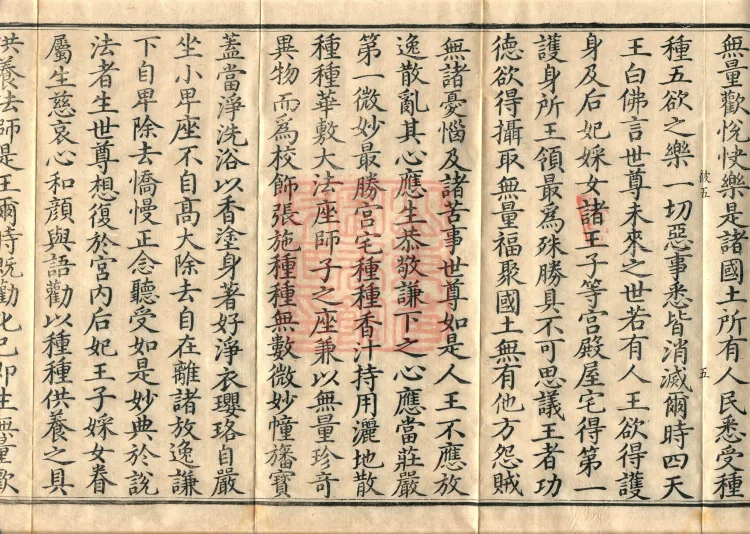 無量歡悅快樂是諸國土所有人民悉受種
種五欲之樂一切惡事悉皆消滅爾時四天
五
王白佛言世尊未來之世若有人王欲得護
身及后妃婇女諸王子等宮殿屋宅得第一
護身所王領最爲殊勝具不可思議王者功
德欲得攝取無量福聚國土無有他方怨賊
無諸憂惱及諸苦事世尊如是人王不應放
逸散亂其心應生恭敬謙下之心應當莊嚴
第一微妙最勝宮宅種種香汁持用灑地散
種種華敷大法座師子之座兼以無量珍奇
異物而爲校飾張施種種無數微妙幢旛寶
蓋當淨洗浴以香塗身著好淨衣瓔珞自嚴
坐小卑座不自高大除去自在離諸放逸謙
下自卑除去憍慢正念聽受如是妙典於說
法者生世尊想復於宮內后妃王子婇女眷
屬生慈哀心和顏與語勸以種種供養之具
供養法師是王爾時既勸化已即生無量歡